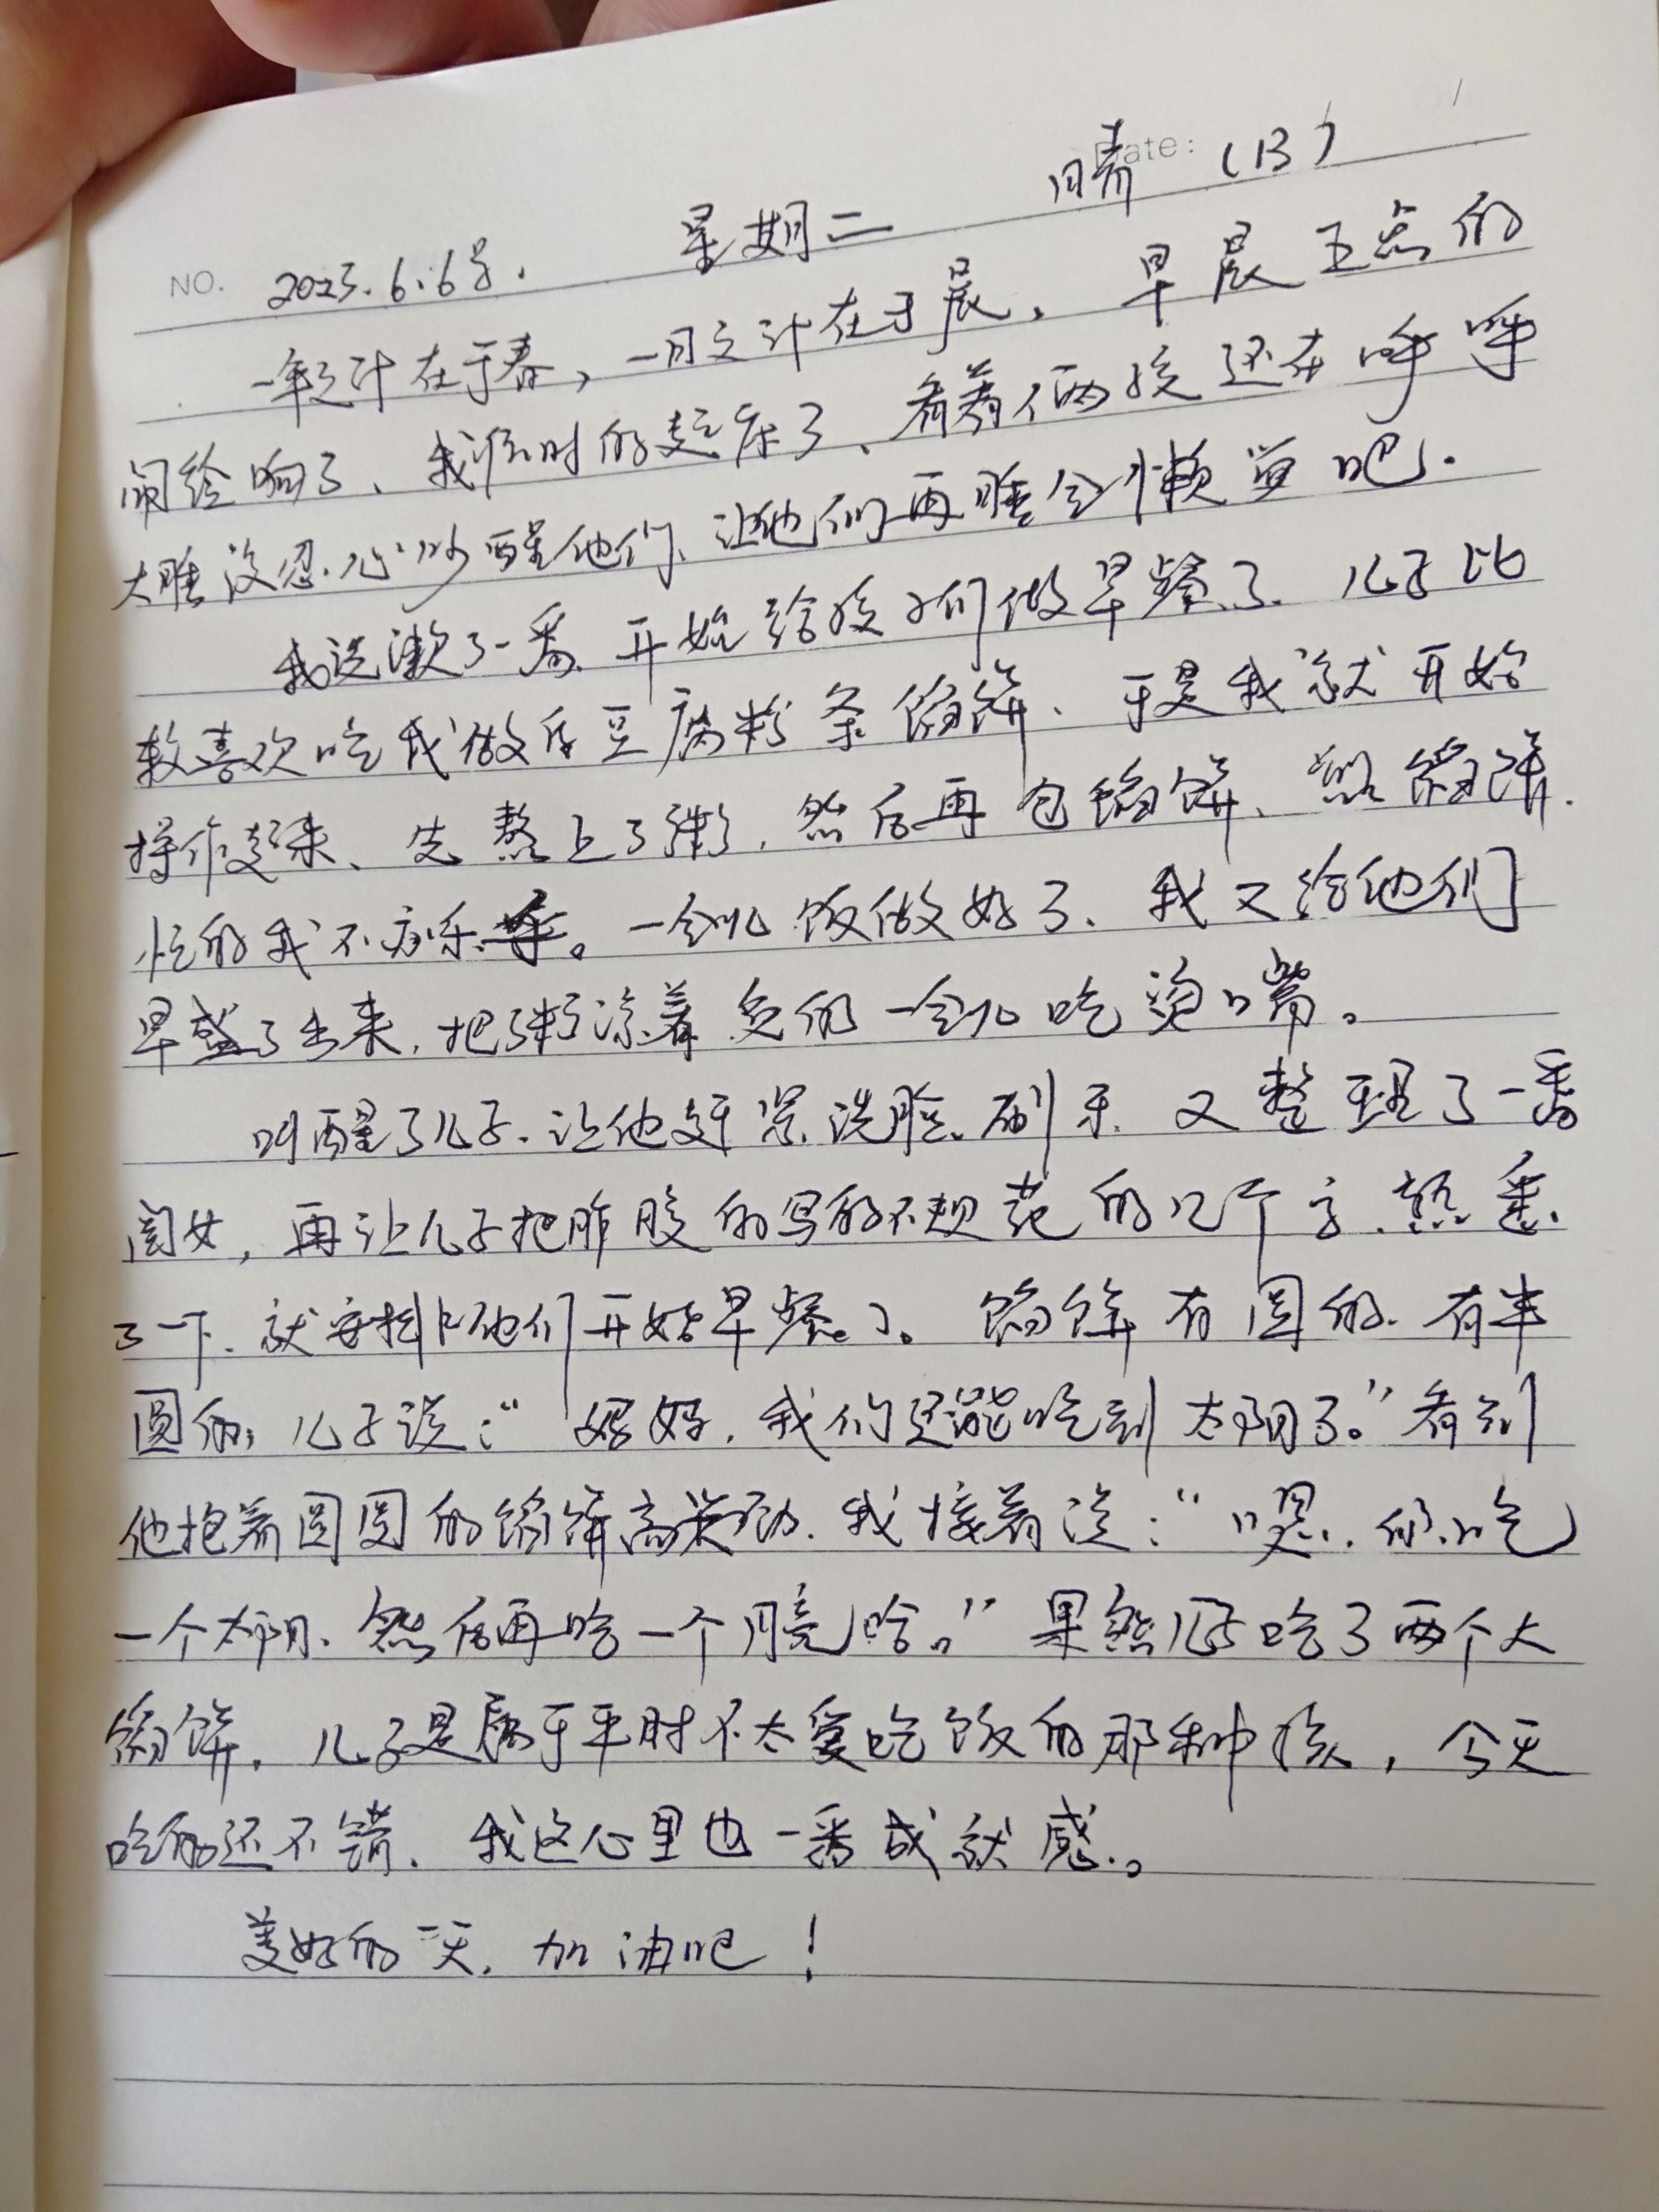 Date: (13)
NO. 2023.6.6号. 星期二 晴
一年之计在于春，一日之计在于晨。早晨五点的
闹铃响了、我准时的起床了、看着俩孩还在呼呼
大睡没忍心吵醒他们、让他们再睡会懒觉吧.
我洗漱了一番、开始给孩子们做早餐了、儿子比
较喜欢吃我做的豆腐粉条馅饼、于是我就开始
操作起来、先熬上了粥，然后再包馅饼、煎馅饼.
忙的我不亦乐乎。一会儿饭做好了、我又给他们
早盛了出来，把粥凉着免的一会儿吃烫嘴。
叫醒了儿子.让他赶紧洗脸、刷牙、又整理了一番
闺女，再让儿子把昨晚的写的不规范的几个字、熟悉
了一下、就安排他们开始早餐了。馅饼有圆的.有半
圆的，儿子说：“妈妈，我们还能吃到太阳了。”看到
他抱着圆圆的馅饼高兴劲.我接着说：“嗯.你吃
一个太阳、然后再吃一个月亮哈。”果然儿子吃了两个大
馅饼，儿子是属于平时不太爱吃饭的那种孩，今天
吃的还不错、我这心里也一番成就感。
美好的一天，加油吧！